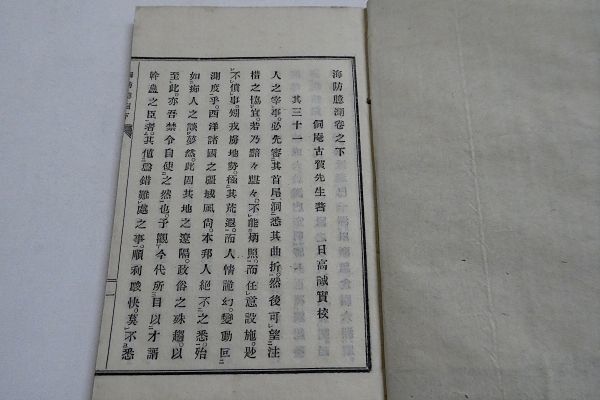 海防臆測卷之下
侗庵古賀先生著 日高誠實校
其三十一
人之宰事必先審其首尾洞悉其曲折然後可望注
措之協宜若乃黯々盬々不能炳照而任意設施尠
不僨事矧戎虜地勢極其荒遐而人情詭幻變動回
測度乎西洋諸國之疆域風尙本邦人絕不之悉殆
如痴人之談夢然此固其地之遼隔政俗之殊趨以
至此亦吾禁令自使之然也予觀今代所目以才諝
幹蠱之臣者其値盤錯難處之事順利駿快莫不悉